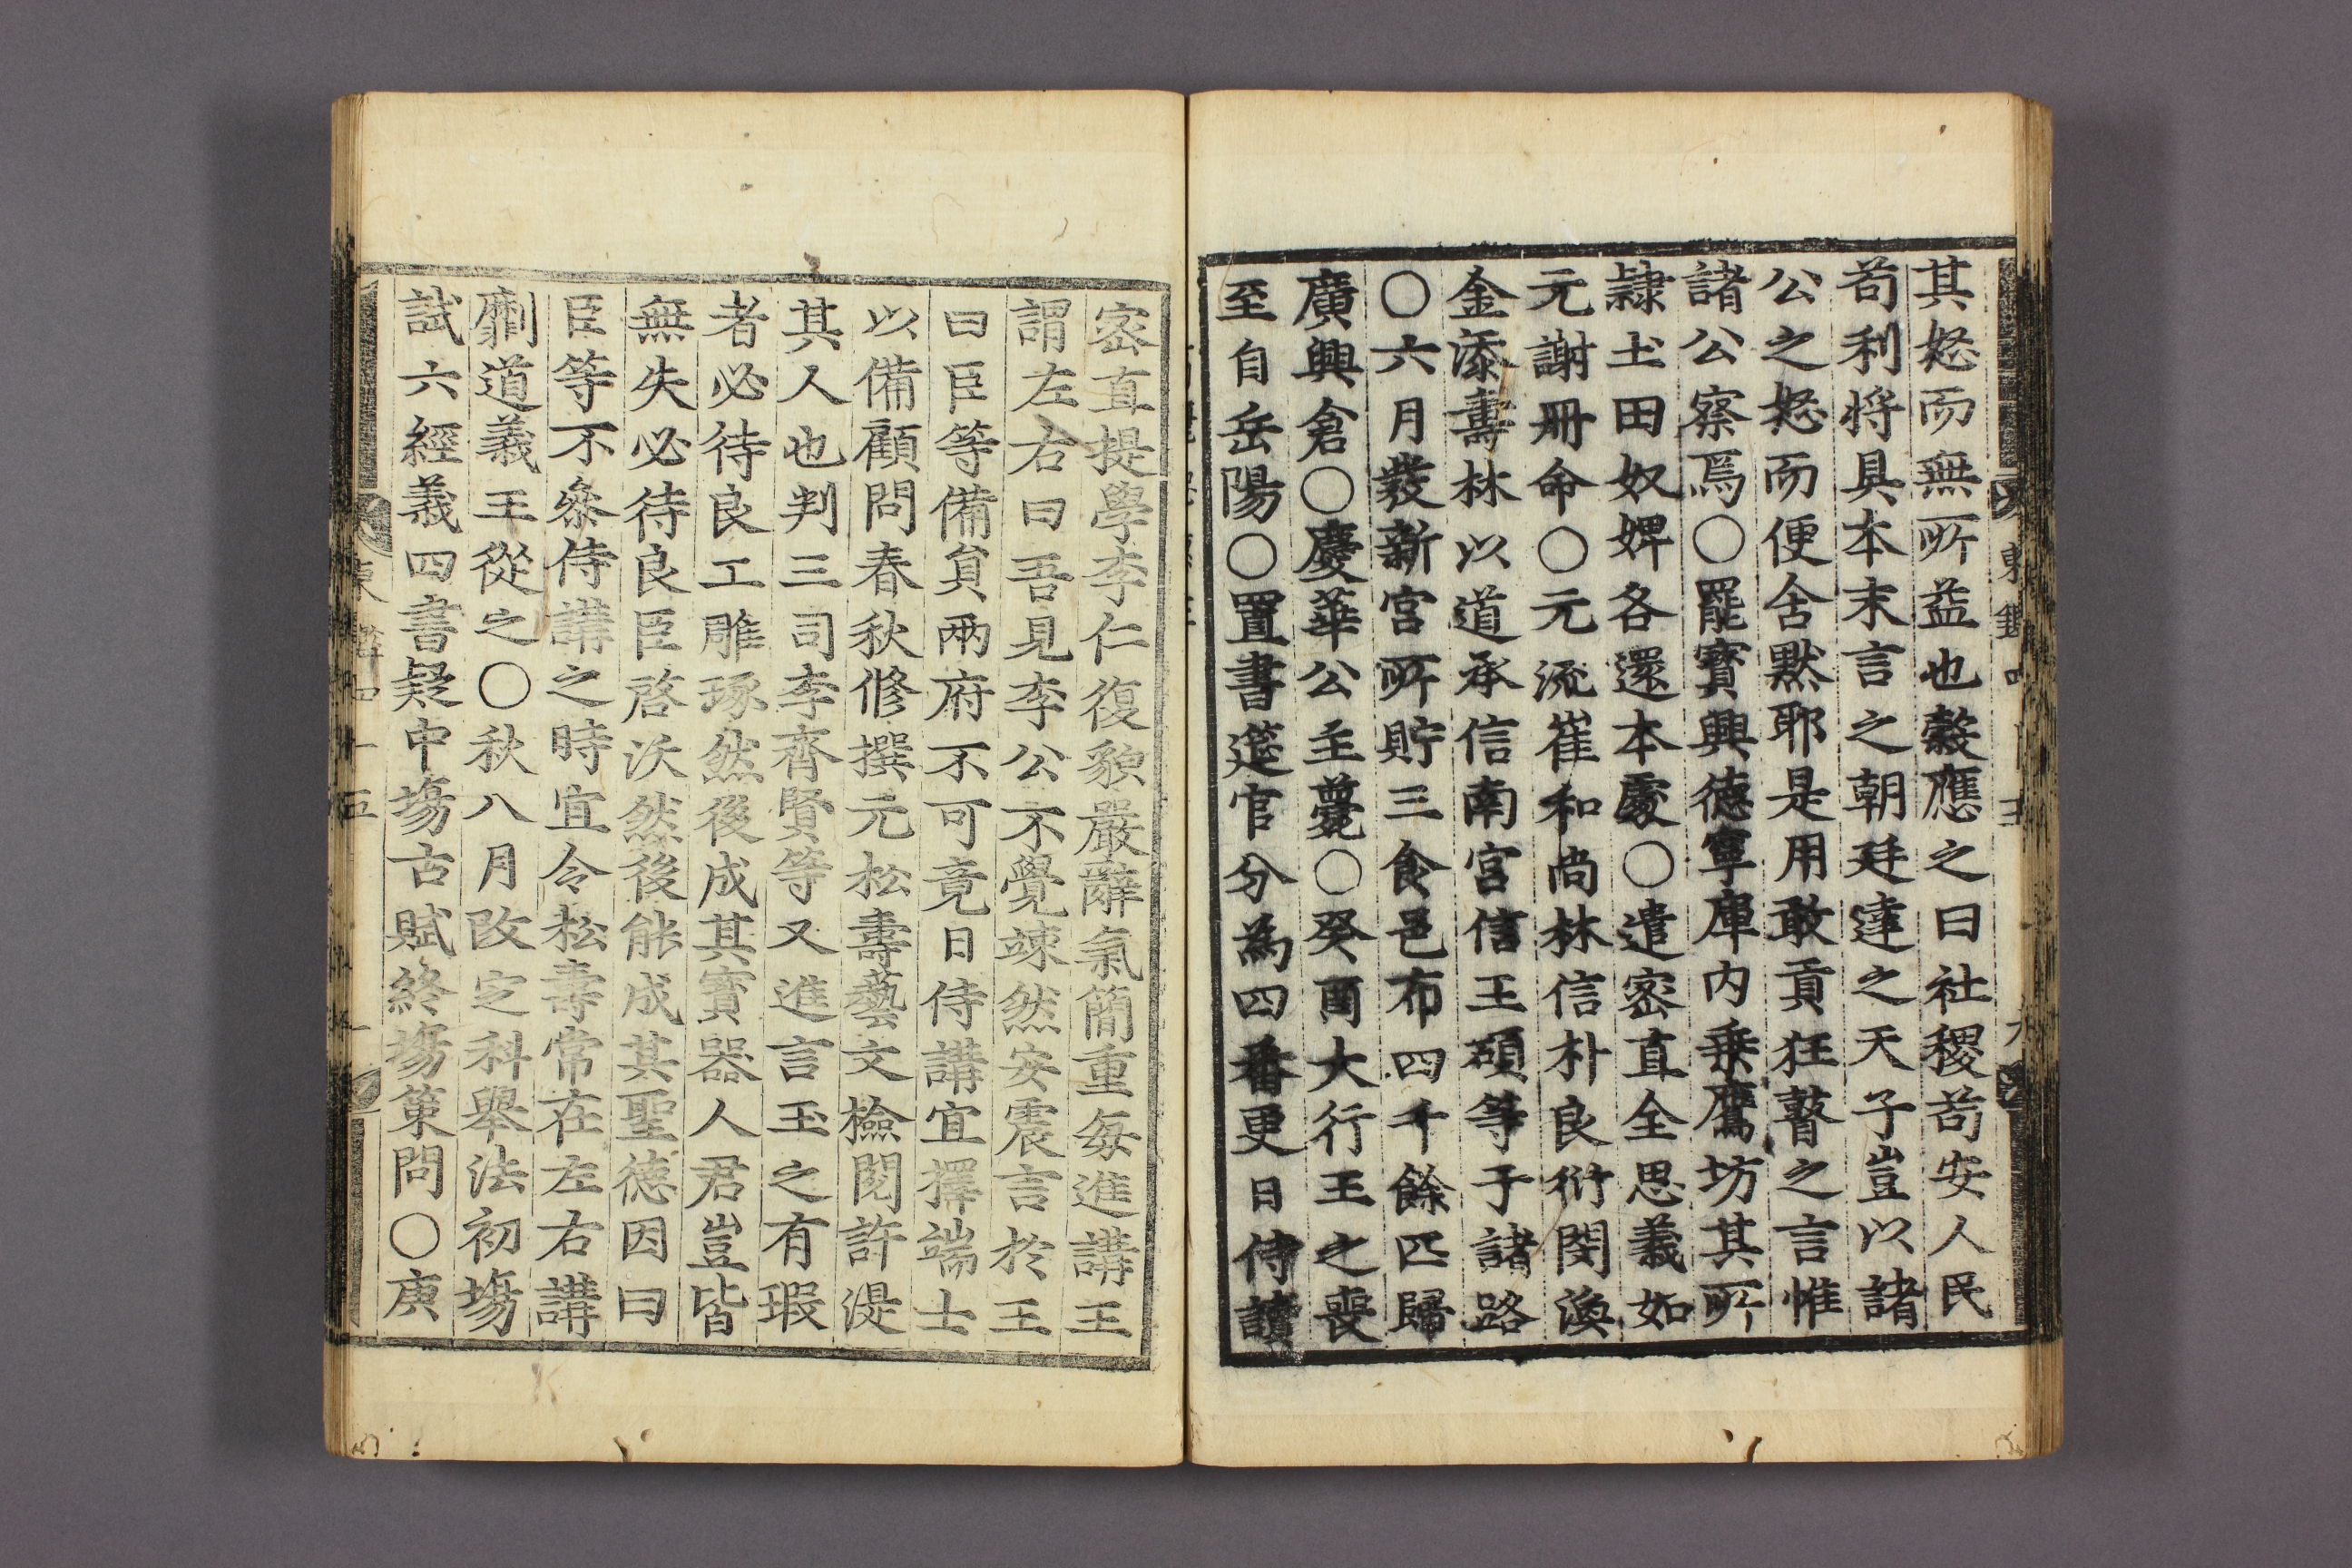 其怒而無所益也縠應之曰社稷苟安人民
苟利將具本末言之朝廷達之天子豈以諸
公之怒而便舍默耶是用敢貢狂瞽之言惟
諸公察焉○罷寶興德寧庫内乗鷹坊其所
隷土田奴婢各還本處○遣密直全思義如
元謝冊命○元流崔和尚林信朴良衍閔渙
金添壽林以道承信南宮信王碩等于諸路
○六月發新宮所貯三食邑布四千餘匹歸
廣興倉○慶華公主薨○癸酉大行王之喪
至自岳陽○置書筵官分為四番更日侍讀
密直提學李仁復貌嚴辭氣簡重每進講王
謂左右曰吾見李公不覺竦然安震言於王
曰臣等備員兩府不可竟日侍講宜擇端士
以備顧問春秋修撰元松壽藝文檢閱許湜
其人也判三司李齊賢等又進言玉之有瑕
者必待良工雕琢然後成其寶器人君豈皆
無失必待良臣啓沃然後能成其聖德因曰
臣等不叅侍講之時宜令松壽常在左右講
劘道義王從之○秋八月改定科舉法初場
試六經義四書疑中場古賦終場策問○庚